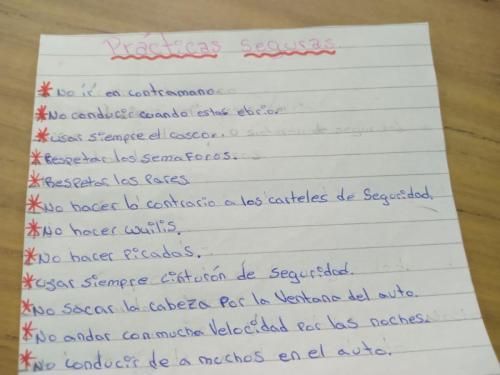 Prácticas seguras
No ir en contramano.
No conducir cuando estas ebrio.
usar siempre el casco.
Respetar los semaforos.
Respetar los Pares
No hacer lo contrario a los carteles de seguridad.
No hacer wuilis.
No hacer Picadas.
usar siempre cinturón de seguridad.
No sacar la cabeza por la ventana del auto.
No andar con mucha velocidad por las noches.
No conducir de a muchos en el auto.